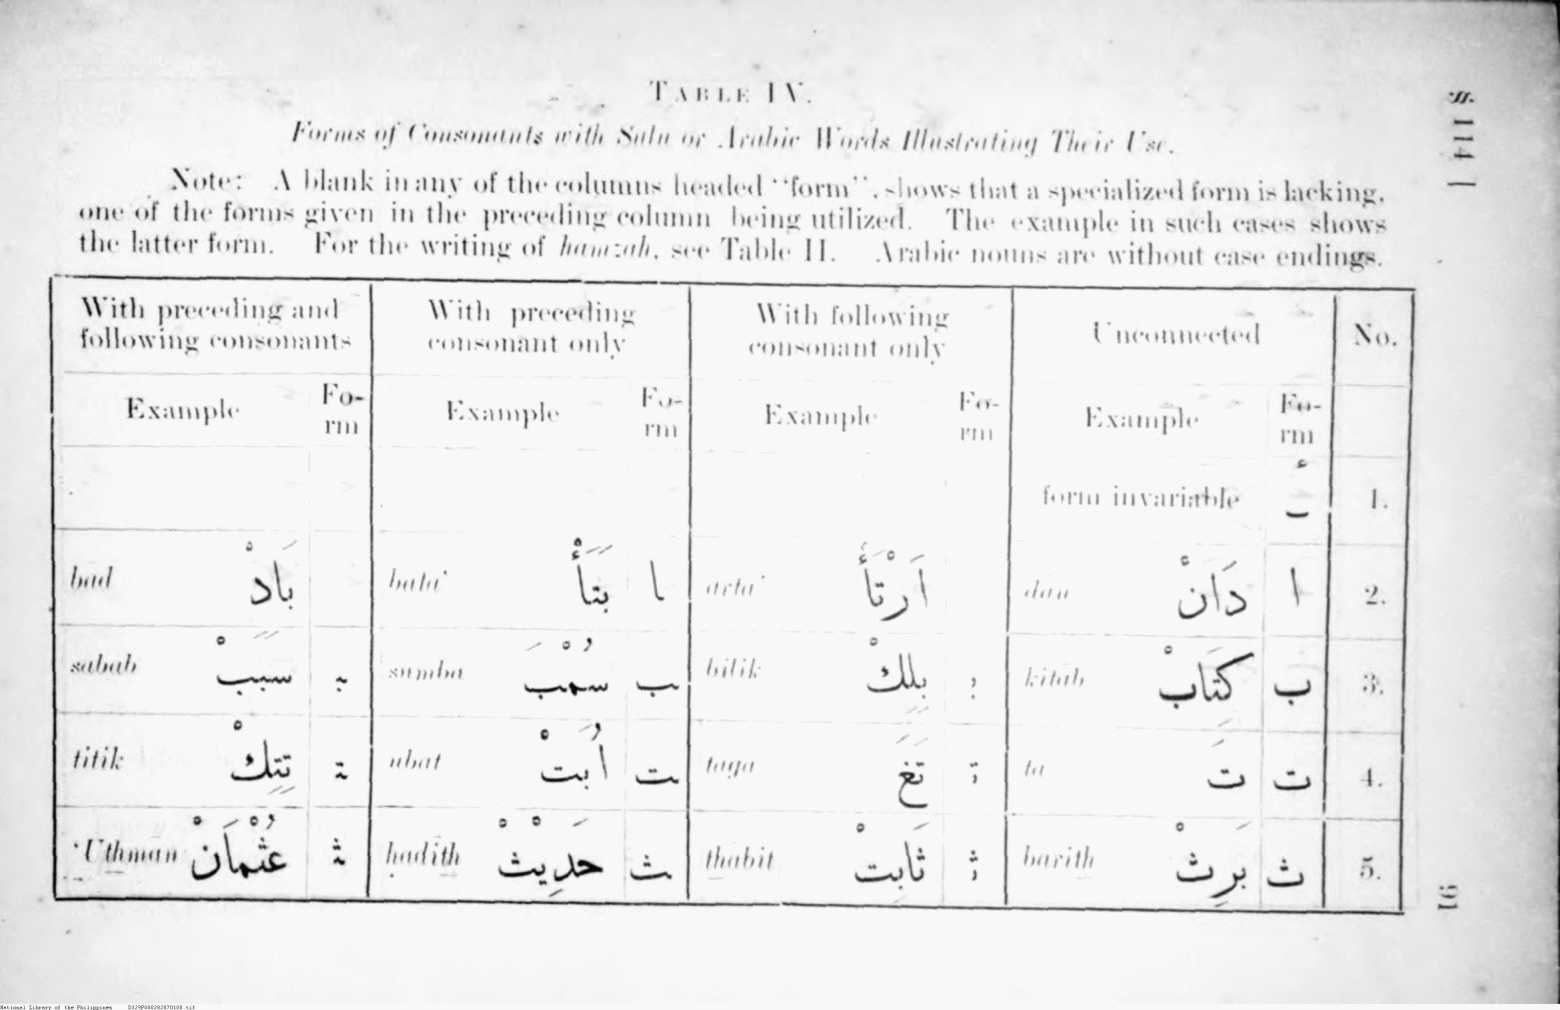 TABLE IV.
Forms of Consonants with Sulu or Arabic Words Illustrating Their Use.
Note: A blank in any of the columns headed "form", shows that a specialized form is lacking,
one of the forms given in the preceding column being utilized. The example in such cases shows
the latter form. For the writing of hamzah, see Table II. Arabic nouns are without case endings.
With preceding and following consonants
With preceding consonant only
With following consonant only
Unconnected
No.
Example Fo-rm Example Fo-rm Example Fo-rm Example Fo-rm
form invariable 1.
bad بَادْ bata' بَتَأْ ا arta' اَرْتَأَ dan دَانْ ا 2.
sabab سَبَبْ ـبـ sumba سُمْبَ ـب bilik بِلِكْ بـ kitab كِتَابْ ب 3.
titik تِتِكْ ـتـ ubat اُبَتْ ـت taga تَغَ تـ ta تَ ت 4.
'Uthman عُثْمَانْ ـثـ ḥadith حَدِيْثْ ـث thabit ثَابِتْ ثـ barith بَرِثْ ث 5.
§ 114]
91
National Library of the Philippines